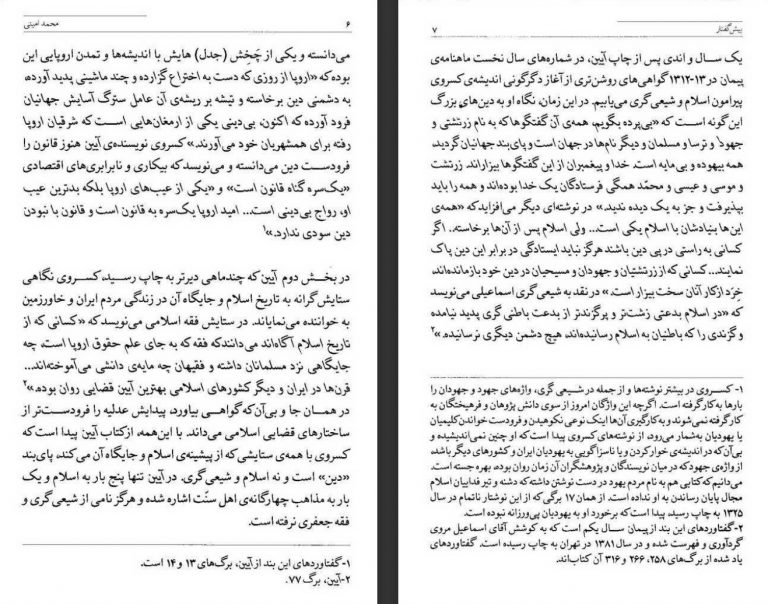 ۶ محمد امینی
می‌دانسته و یکی از چَخِش (جدل) هایش با اندیشه‌ها و تمدن اروپایی این
بوده که «اروپا از روزی که دست به اختراع گزارده و چند ماشینی پدید آورده،
به دشمنی دین برخاسته و تیشه بر ریشه‌ی آن عامل سترگ آسایش جهانیان
فرود آورده که اکنون، بی‌دینی یکی از ارمغان‌هایی است که شرقیان اروپا
رفته برای همشهریان خود می‌آورند.» کسروی نویسنده‌ی آیین هنوز قانون را
فرودست دین می‌دانسته و می‌نویسد که بیکاری و نابرابری‌های اقتصادی
«یک‌سره گناه قانون است» و «یکی از عیب‌های اروپا بلکه بدترین عیب
او، رواج بی‌دینی است... امید اروپا یک‌سره به قانون است و قانون با نبودن
دین سودی ندارد.»۱
در بخش دوم آیین که چندماهی دیرتر به چاپ رسید، کسروی نگاهی
ستایش‌گرانه به تاریخ اسلام و جایگاه آن در زندگی مردم ایران و خاورزمین
به خواننده می‌نمایاند. در ستایش فقه اسلامی می‌نویسد که «کسانی که از
تاریخ اسلام آگاه‌اند می‌دانند که فقه که به جای علم حقوق اروپا است، چه
جایگاهی نزد مسلمانان داشته و فقیهان چه مایه‌ی دانشی می‌آموخته‌اند...
قرن‌ها در ایران و دیگر کشورهای اسلامی بهترین آیین قضایی روان بوده.»۲
در همان جا و بی‌آن‌که گواهی بیاورد، پیدایش عدلیه را فرودست‌تر از
ساختارهای قضایی اسلامی می‌داند. با این‌همه، ازکتاب آیین پیدا است که
کسروی با همه‌ی ستایشی که از پیشینه‌ی اسلام و جایگاه آن می‌کند، پای‌بند
«دین» است و نه اسلام و شیعی‌گری. در آیین تنها پنج بار به اسلام و یک
بار به مذاهب چهارگانه‌ی اهل سنّت اشاره شده و هرگز نامی از شیعی‌گری و
فقه جعفری نرفته است.
۱-گفتاوردهای این بند از آیین، برگ‌های ۱۳ و ۱۴ است.
۲-آیین، برگ ۷۷.
پیش‌گفتار ۷
یک سال و اندی پس از چاپ آیین، در شماره‌های سال نخست ماهنامه‌ی
پیمان در ۱۳-۱۳۱۲ گواهی‌های روشن‌تری از آغاز دگرگونی اندیشه‌ی کسروی
پیرامون اسلام و شیعی‌گری می‌یابیم. در این زمان، نگاه او به دین‌های بزرگ
این گونه است که «بی‌پرده بگویم، همه‌ی آن گفتگوها که به نام زرتشتی و
جهود۱ و ترسا و مسلمان و دیگر نام‌ها در جهان است و پای‌بند جهانیان گردید،
همه بیهوده و بی‌مایه است. خدا و پیغمبران از این گفتگوها بیزاراند. زرتشت
و موسی و عیسی و محمّد همگی فرستادگان یک خدا بوده‌اند و همه را باید
بپذیرفت و جز به یک دیده ندید.» در نوشته‌ای دیگر می‌افزاید که «همه‌ی
این‌ها بنیادشان با اسلام یکی است... ولی اسلام پس از آن‌ها برخاسته.. اگر
کسانی به راستی در پی دین باشند هرگز نباید ایستادگی در برابر این دین پاک
نمایند... کسانی که از زرتشتیان و جهودان و مسیحیان در دین خود بازمانده‌اند،
خِرَد از کار آنان سخت بیزار است.» در نقد به شیعی‌گری اسماعیلی می‌نویسد
که «در اسلام بدعتی زشت‌تر و پرگزندتر از بدعت باطنی گری پدید نیامده
و گزندی را که باطنیان به اسلام رسانیده‌اند، هیچ دشمن دیگری نرسانیده.»۲
۱- کسروی در بیشتر نوشته‌ها و از جمله در شیعی گری، واژه‌های جهود و جهودان را
بارها به کار گرفته است. اگرچه این واژگان امروز از سوی دانش پژوهان و فرهیختگان به
کار گرفته نمی شوند و به کارگیری آن‌ها اینک نوعی نکوهیدن و فرودست خواندن کلیمیان
یا یهودیان به‌شمار می‌رود، از نوشته‌های کسروی پیدا است که او چنین نمی‌اندیشیده و
بی‌آن که در اندیشه‌ی خوارکردن و یا ناسزاگویی به یهودیان ایران و کشورهای دیگر باشد
از واژه‌ی جهود که در میان نویسندگان و پژوهشگران آن زمان روان بوده، بهره جسته است.
می‌دانیم که کتابی هم به نام مردم یهود در دست نوشتن داشته که دشنه و تیر فداییان اسلام
مجال پایان رساندن به او نداده است. از همان ۱۷ برگی که از این نوشتار ناتمام در سال
۱۳۲۵ به چاپ رسید، پیدا است که برخورد او به یهودیان پی‌ورزانه نبوده است.
۲-گفتاوردهای این بند از پیمان سال یکم است که به کوشش آقای اسماعیل مروی
گردآوری و فهرست شده و در سال ۱۳۸۱ در تهران به چاپ رسیده است. گفتاوردهای
یاد شده از برگ‌های ۲۵۸، ۲۶۶ و ۳۱۶ آن کتاب‌اند.